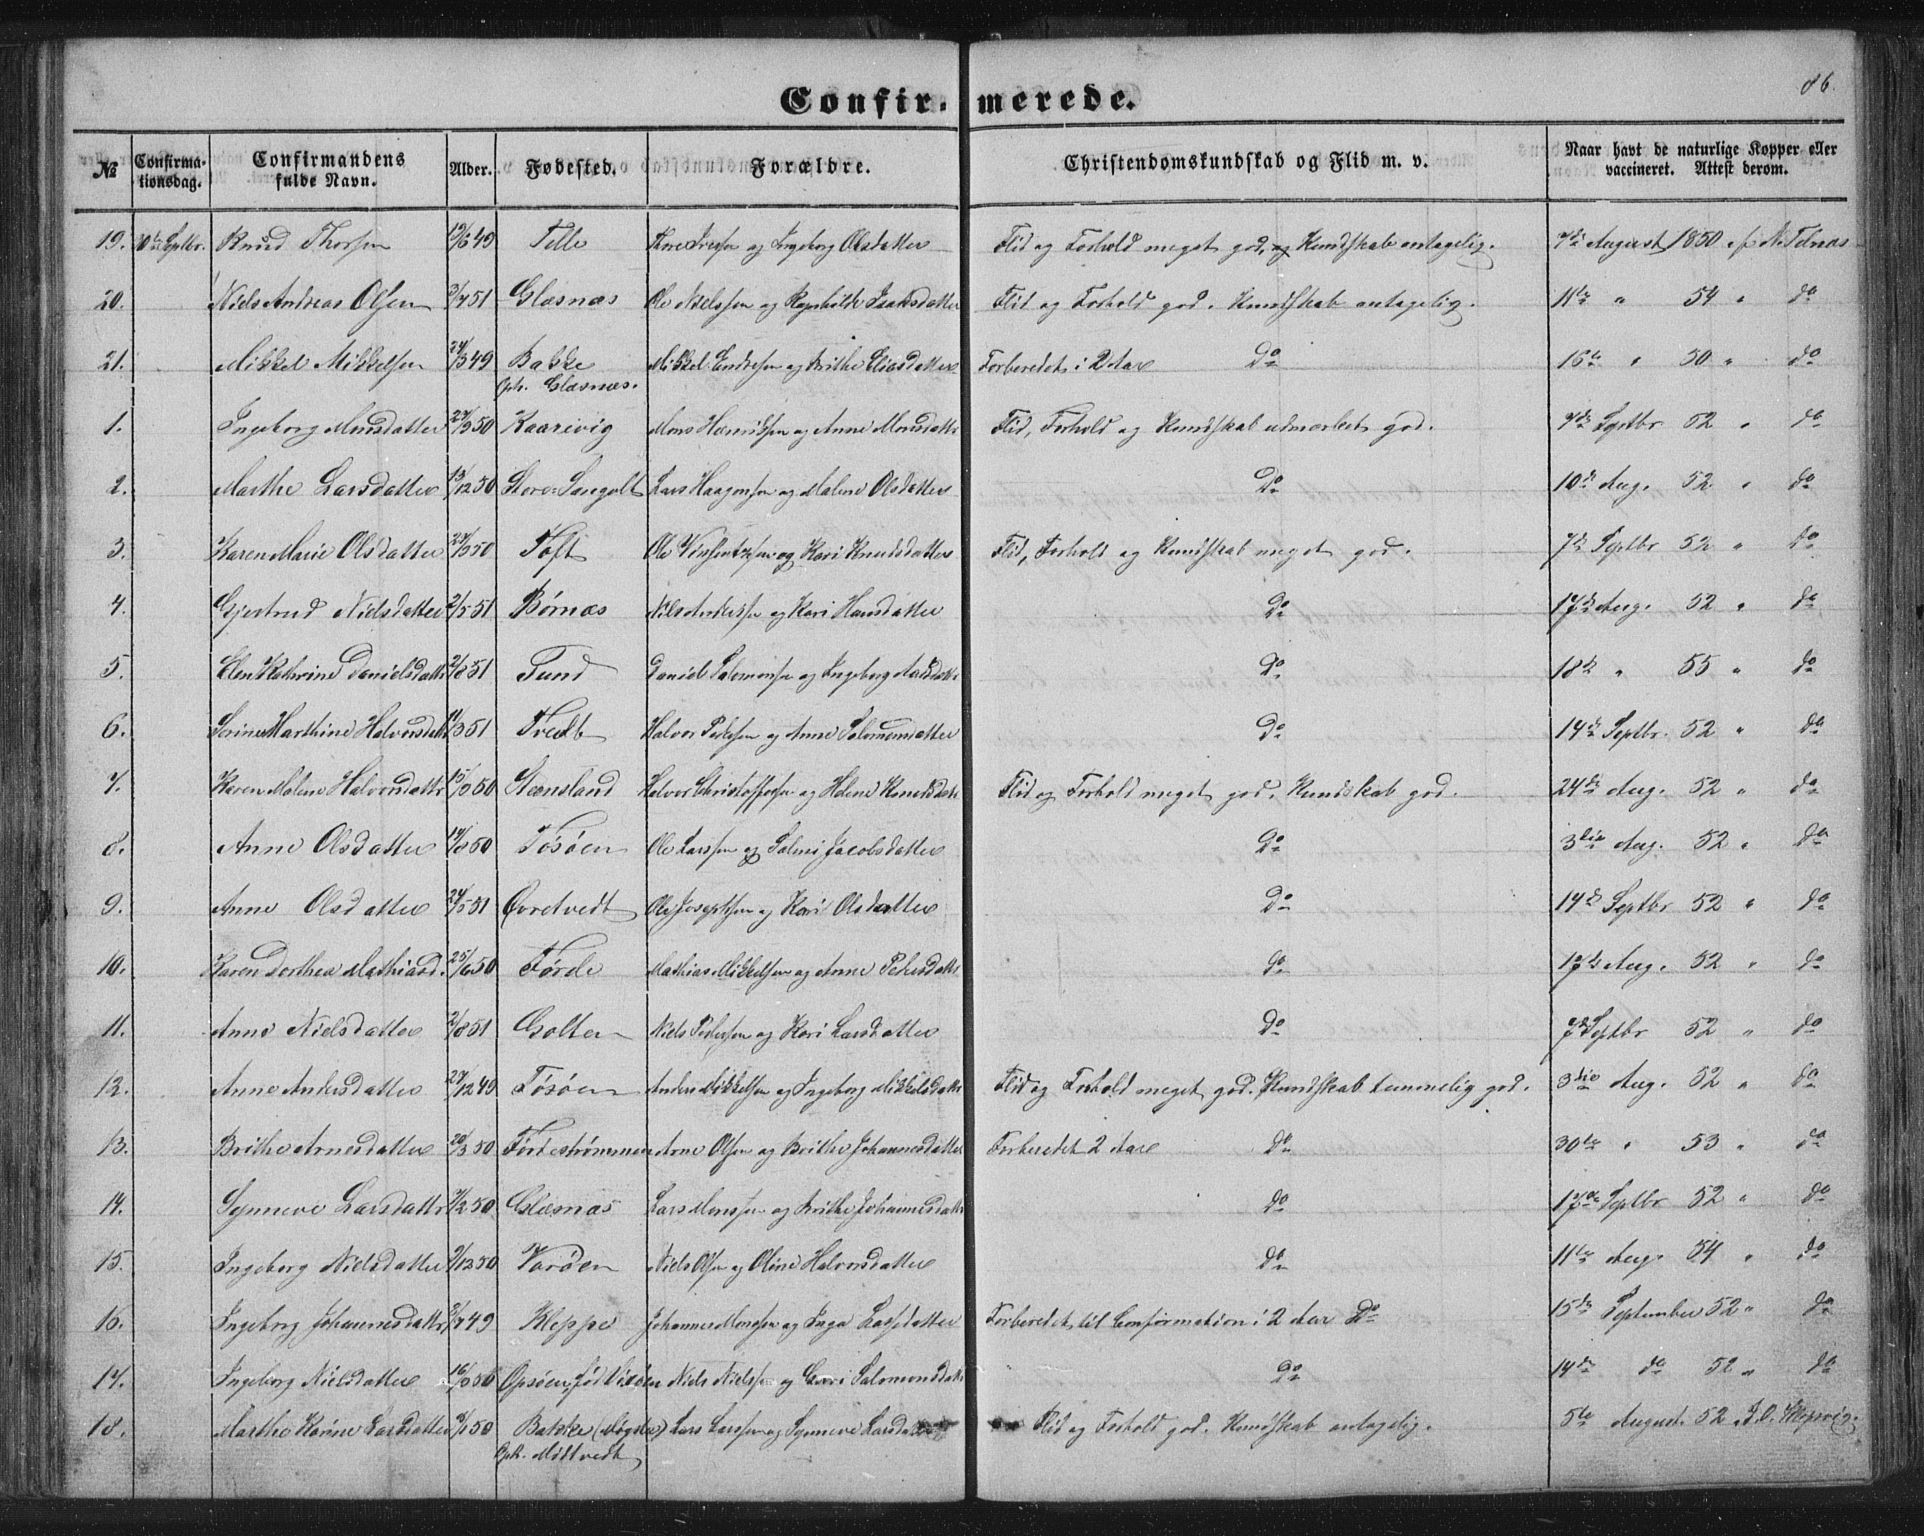 86.
Confirmerede.
№ Confirmationsdag. Confirmandens fulde Navn. Alder. Fødested. Forældre. Christendomskundskab og Flid m. v. Naar havt de naturlige Kopper eller vaccineret. Attest derom.
19. Septbr. Knud Thorsen 49 Telle og Ingeborg Olsdatter Flid og Forhold meget god, og Kundskab antagelig. August 1850 af N. Tdnæs
20. Niels Andreas Olsen 51 Glæsnæs Ole Nielssen og Isaksdatter Flid og Forhold god. Kundskab antagelig. 11te " 54 " do
21. Mikkel Mikkelsen 49 Bakke Mikkel Endresen og Brithe Eliasdatter Forberedet i 2 Aar Do 16te " 50 " do
Oph. Glæsnæs.
1. Ingeborg Monsdatter 50 Kaarevig Mons og Anne Monsdattr Flid, Forhold og Kundskab udmærket god. 7de Septbr 52 " do
2. Marthe Larsdatter 13/12 50 Store Sangolt Lars Haagensen og Malene Olsdatter Do 10de Aug. 52 " do
3. Karen Marie Olsdatter 50 Toft Ole Vinsentssen og Kari Knudsdatter Flid, Forhold og Kundskab meget god. 7de Septbr 52 " do
4. Gjertrud Nielsdatter 2/5 51 Børnæs Nils Anderssen og Kari Hansdatter do 17de Aug. 52 " do
5. Elen Kathrine Danielsdattr 2/8 51 Tund Daniel Salomonsen og Ingeborg do 18de " 55 " do
6. Serine Marthine Halvorsdattr 3 51 Tvedt Halvor Pederssen og Anne Salomonsdatter do 14de Septbr. 52 " do
7. Karen Malene Halvorsdattr 50 Steensland Halvor Christoffersen og Helene Flid og Forhold meget god. Kundskab god. 24de Aug. 52 " do
8. Anne Olsdatter 14/8 50 Tøsøen Ole Larssen og Salmi Jacobsdatter do 3die Aug. 52 " do
9. Anne Olsdatter 24/5 51 Qvretvedt Ole Josephsen og Kari Olsdatter Do 14de Septbr 52 " do
10. Karen Dorthea Mathiasd. 25/6 50 Førde Mathias Mikkelsen og Anne Pedersdattr do 17de Aug. 52 " do
11. Anne Nielsdatter 2/8 51 Golten Niels Pederssen og Kari Larsdatter do 7de Septbr 52 " do
12. Anne Andersdatter 27/12 49 Tøsøen Anders Mikkelsen og Ingeborg Mikkelsdattr Flid og Forhold meget god. Kundskab temmelig god. 3die Aug. 52 " do
13. Brithe Arnesdatter 20/3 50 Førdestrømmen Arne Olsen og Brithe Johannesdatter Forberedet 2 Aar do 30te " 53 " do
14. Synneve Larsdattr 2 50 Glæsnæs Lars Monssen og Brithe Johannesdattr do 17de Septbr 52 " do
15. Ingeborg Nielsdatter 9/12 50 Varøen Niels Olsen og Oline Halvorsdatter do 11te Aug. 54 " do
16. Ingeborg Johannesdattr 49 Kleppe Johannes Monssen og Inga Larsdatter Forberedet til Confirmation i 2 Aar Do 15de September 52 " do
17. Ingeborg Nielsdatter 50 Opsøen, fød Niels Nielssen og Salomonsdattr do 14de do 52 " do
18. Marthe Karine Larsdatter 50 Bakke (Møgster) Lars Larssen og Synneve Larsdatter Flid og Forhold god. Kundskab antagelig. 5te August 52 J. O. Skepsvig.
Oph. Midtvedt